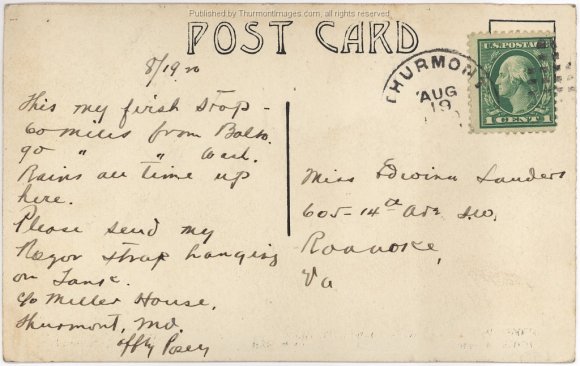 Published by Thurmontimages.com, all rights reserved
POST CARD
8/19 20
This my first Stop -
60 miles from Balto.
90 " " Wash.
Rains all time up
here.
Please send my
Razor strap hanging
on
c/o Miller House,
Thurmont, Md.
Posey
THURMONT
AUG
19
U.S. POSTAGE
1 CENT 1
Miss Edwina Landers
605-14th Ave S.W.
Roanoke,
Va